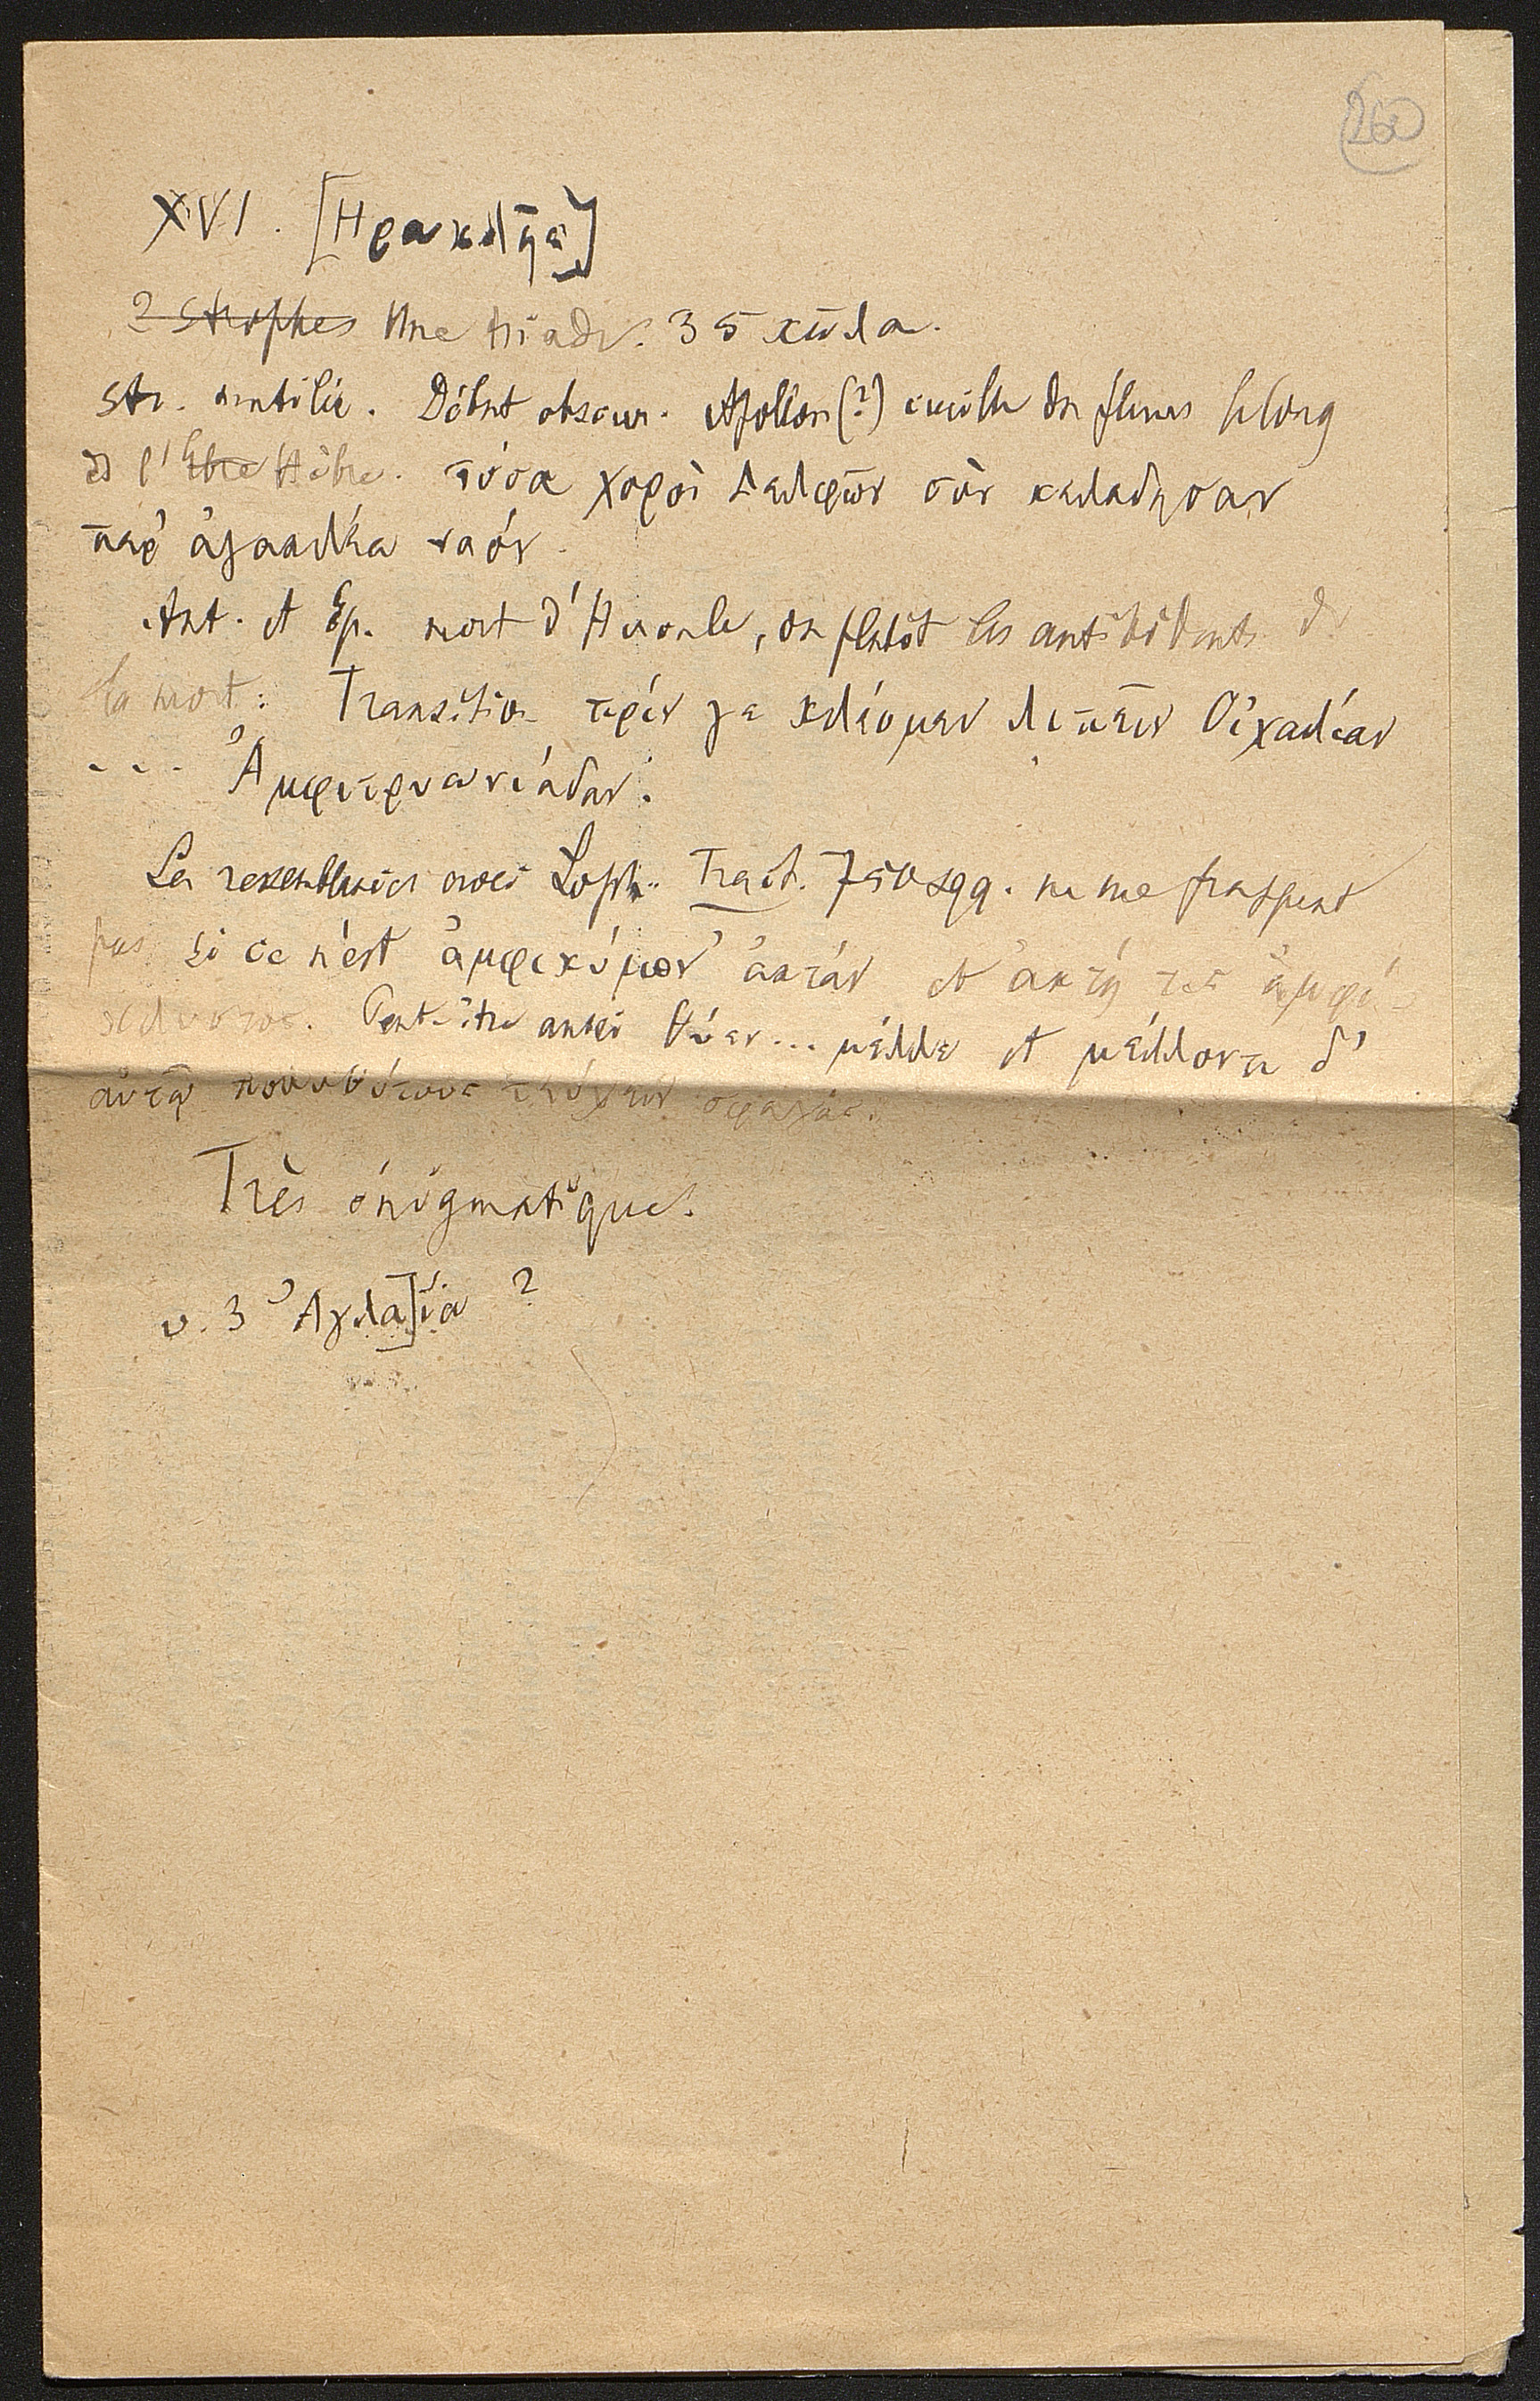 260
XVI. [Ηρακλῆς]
2 strophes Une triade. 35 κῶλα.
Str. mutilée. Début obscur. Apollon (?) cueille des fleurs le long
de l'Ebre Hèbre. τόσα χοροὶ Δελφῶν σὸν κελάδησαν
παρ' ἀγακλέα ναόν.
Ant. et Ep. mort d'Hercule, ou plutôt les antécédents de
la mort: Transition πρίν γε κλέομεν λιπεῖν Οἰχαλίαν
... Ἀμφιτρυωνιάδαν.
Les ressemblances avec Soph. Trach. 750 sqq. ne me frappent
pas si ce n'est ἀμφικύμον' ἀκτάν et ἀκτή τις ἀμφί-
κλυστος. Peut-être aussi θύεν... μέλλε et μέλλοντι δ'
αὐτῷ πολυθύτους τεύχειν σφαγάς.
Très énigmatique.
v. 3 Ἀγλα]ΐα ?